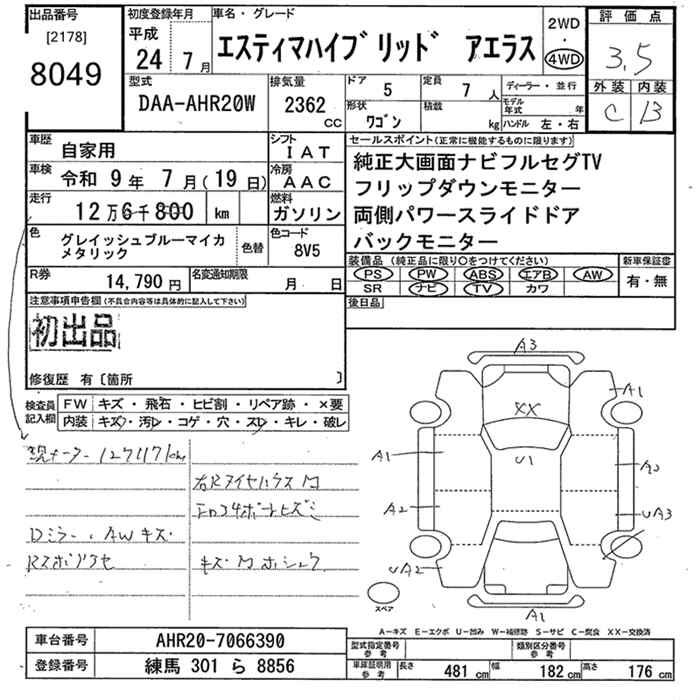 出品番号
[2178]
8049
初度登録年月
平成
24年7月
車名・グレード
エスティマハイブリッド アエラス
2WD
・
4WD
評価点
3.5
外装 内装
C B
型式
DAA-AHR20W
排気量
2362
CC
ドア
5
形状
ワゴン
定員
7人
積載
kg
ディーラー・並行
モデル年式 年
ハンドル 左・右
車歴
自家用
シフト
IAT
車検
令和 9年 7月(19日)
冷房
AAC
走行
12万6千800 km
燃料
ガソリン
色
グレイッシュブルーマイカ
メタリック
色替
色コード
8V5
R券
14,790円
名変通知期限
月 日
セールスポイント(正常に機能するものに限ります)
純正大画面ナビフルセグTV
フリップダウンモニター
両側パワースライドドア
バックモニター
装備品 (純正品に限り○をつけてください)
PS PW ABS エアB AW
SR ナビ TV カワ
新車保証書
有・無
後日品
注意事項申告欄(不具合内容等は具体的に記入して下さい)
初出品
修復歴 有〔箇所 〕
検査員
記入欄
FW キズ・飛石・ヒビ割・リペア跡・×要
内装 キズ・汚レ・コゲ・穴・スレ・キレ・破レ
現メーター 127171km
右Rタイヤハウス
Dミラー、AWキズ
A3
A1
XX
U1
A1
A2
UA3
A2
UA2
A1
スペア
A-キズ E-エクボ U-凹み W-補修跡 S-サビ C-腐食 XX-交換済
車台番号
AHR20-7066390
登録番号
練馬 301 ら 8856
型式指定番号
参考
類別区分番号
参考
車庫証明用
参考
長さ 481 cm
幅 182 cm
高さ 176 cm